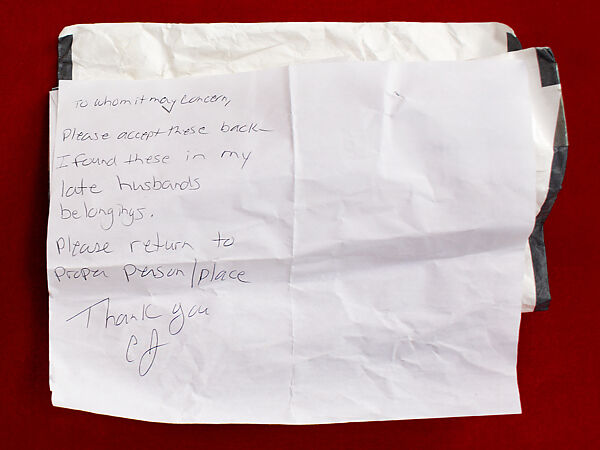 To whom it may concern,
Please accept these back
I found these in my
late husbands
belongings.
Please return to
proper person/place
Thank you
CJ